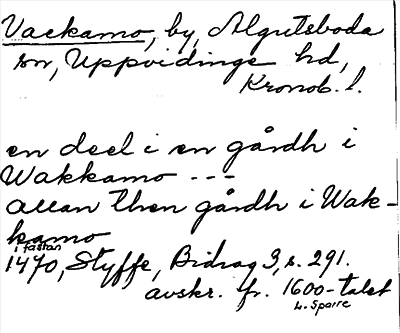 Vackamo, by, Algutsboda
sn, Uppvidinge hd,
Kronob. l.
en deel i en gårdh i
Wakkamo ---
allan then gårdh i Wak-
kamo
i fastan
1470, Styffe, Bidrag 3, s. 291.
avskr. fr. 1600-talet
L. Sparre